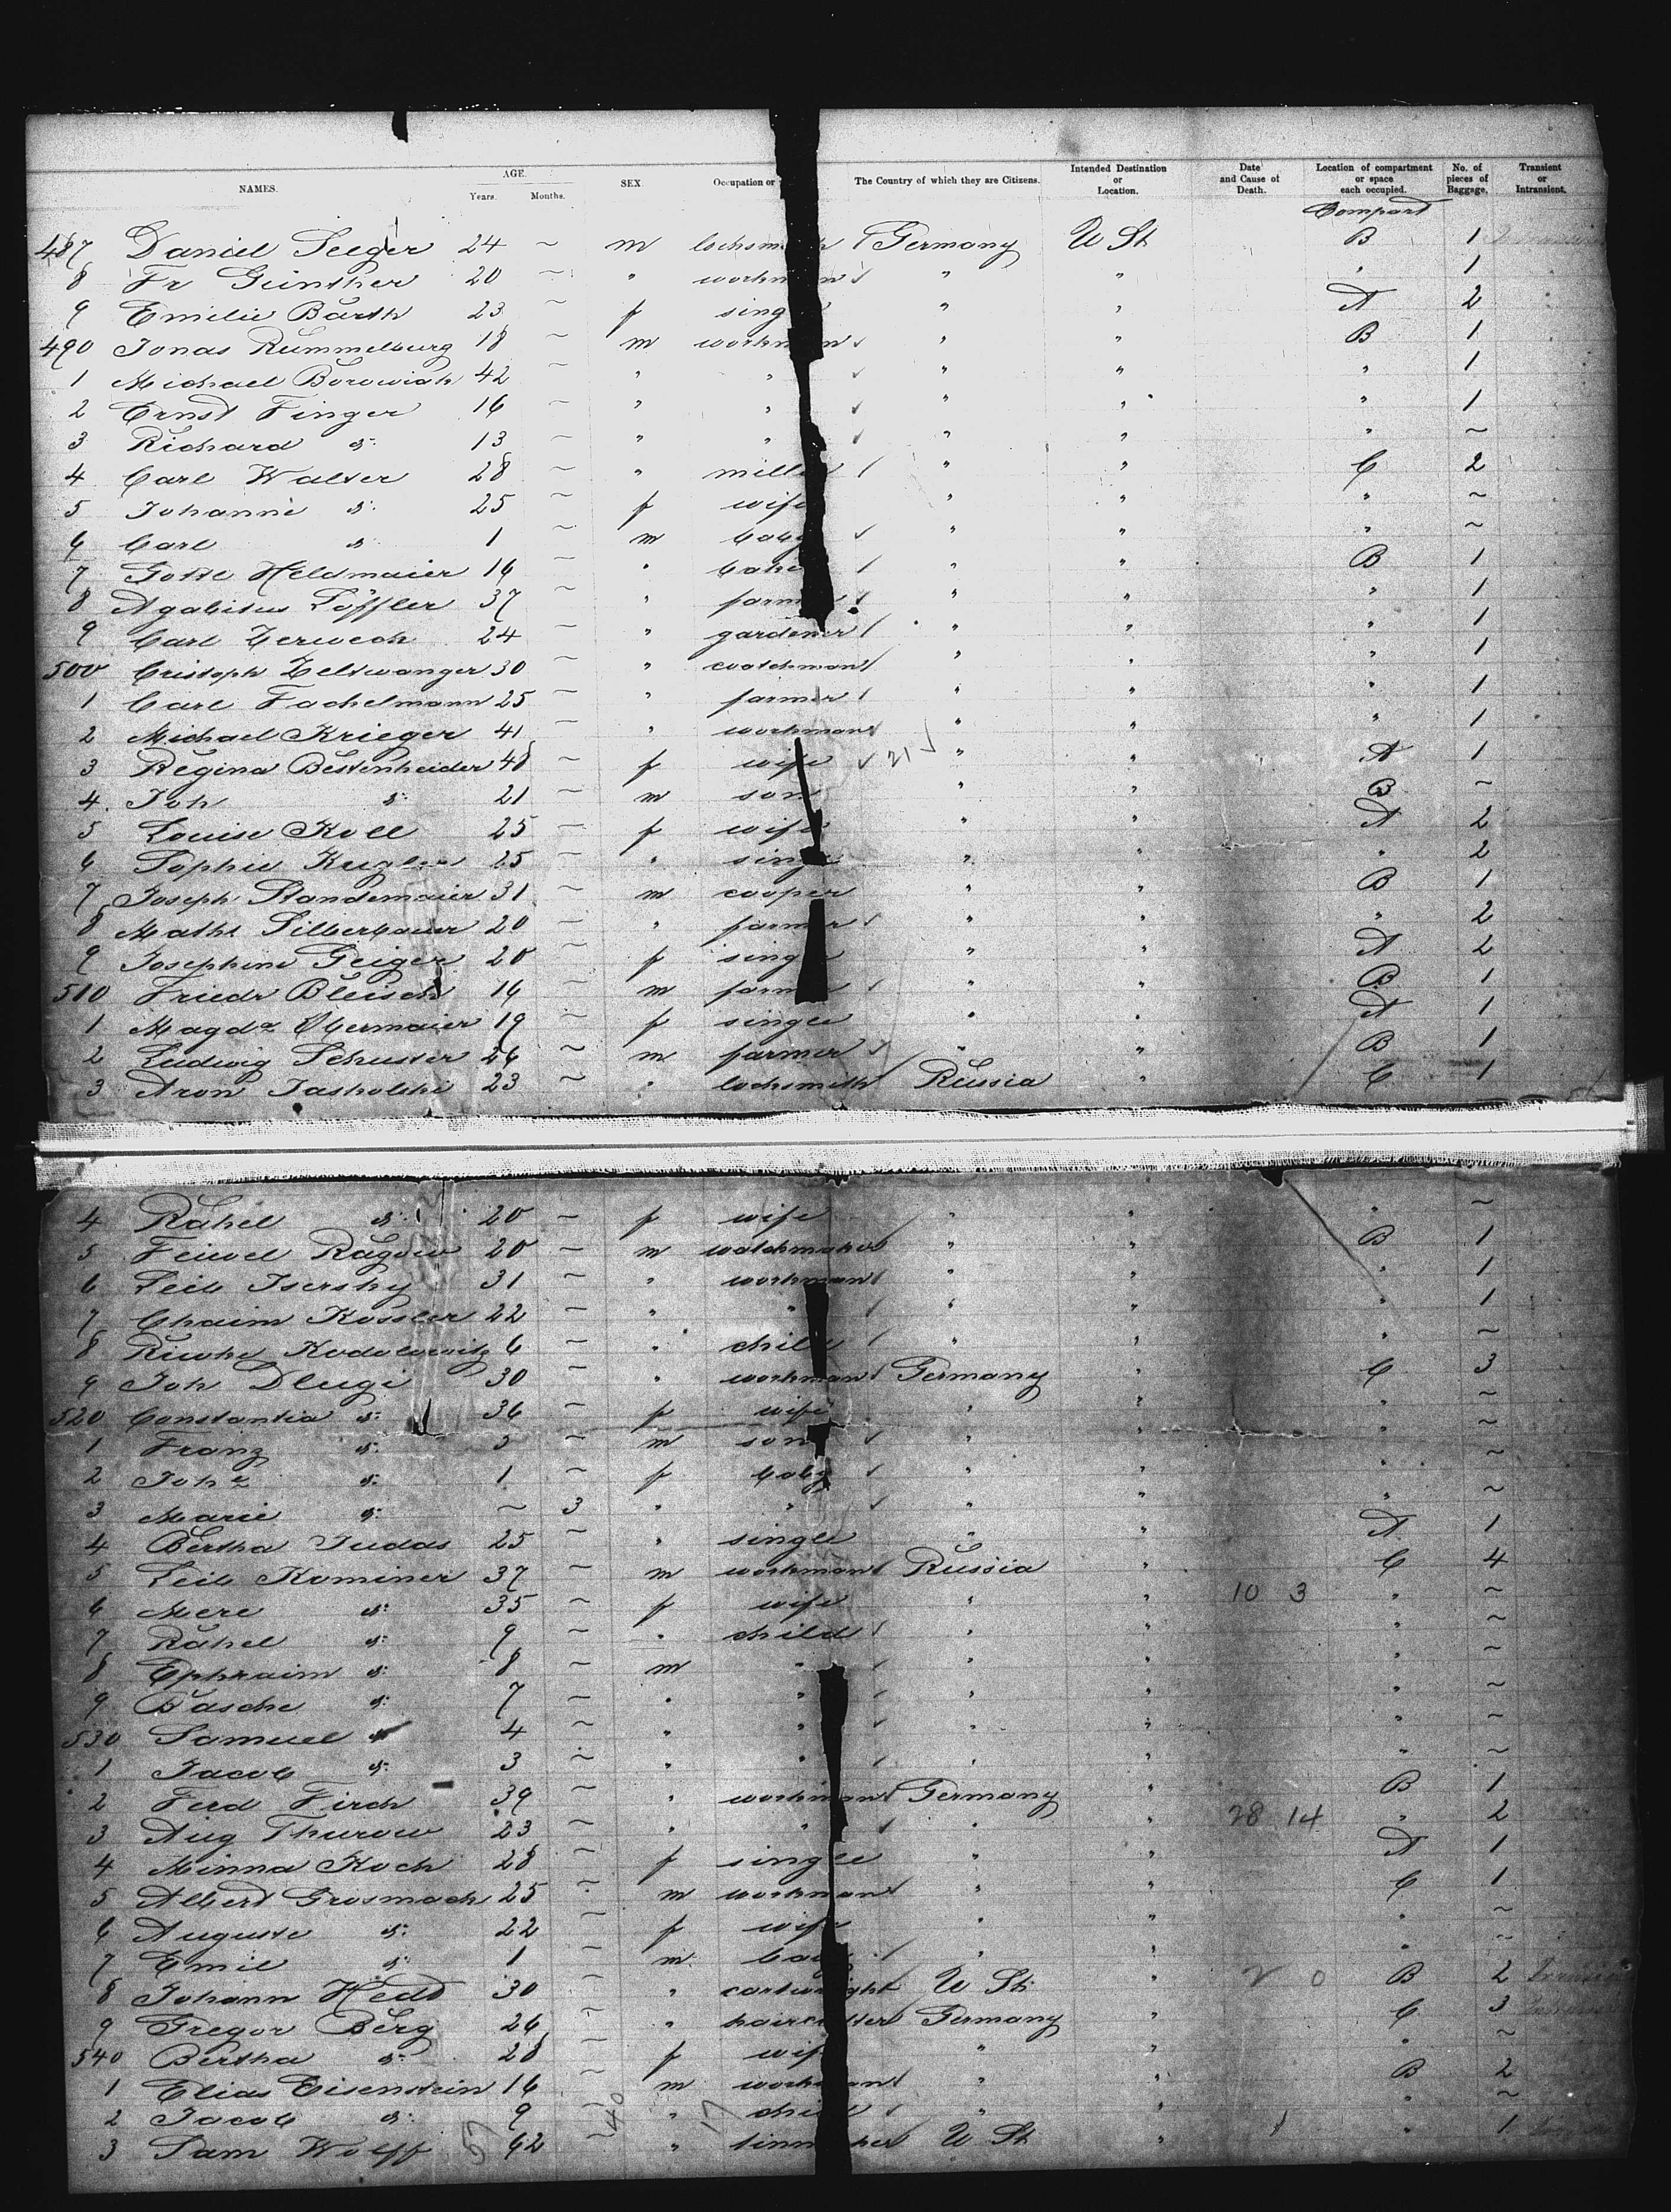 NAMES. AGE. Years. Months. SEX Occupation or The Country of which they are Citizens. Intended Destination or Location. Date and Cause of Death. Location of compartment or space each occupied. No. of pieces of Baggage. Transient or Intransient.
Compart
487 Daniel Seeger 24 ~ m locksm U St B 1
8 Fr Günther 20 ~ " workm n " " " 1
9 Emilie Barth 23 ~ f sing " " A 2
490 Jonas Rummelburg 18 ~ m workm n " " B 1
1 Michael Borowiak 42 ~ " " " " " 1
2 Ernst Finger 16 ~ " " " " " 1
3 Richard d: 13 ~ " " " " " ~
4 Carl Walter 28 ~ " mill " " C 2
5 Johanne d: 25 ~ f wife " " " ~
6 Carl d: 1 ~ m baby " " " ~
7 Gottl Heldmaier 16 ~ " bak " " B 1
8 Agabitus Löffler 37 ~ " farm " " " 1
9 Carl Zerwech 24 ~ " gardener " " " 1
500 Cristoph Zeltwanger 30 ~ " " " " 1
1 Carl Fachelmann 25 ~ " farmer " " " 1
2 Michael Krieger 41 ~ " workman " " " 1
3 Regina Bestenheider 48 ~ f wife " " A 1
4 Joh d: 21 ~ m son " " B ~
5 Louise Koll 25 ~ f wife " " A 2
6 Sophie Kugler 25 ~ " sing " " " 2
7 Joseph Standemaier 31 ~ m cooper " " B 1
8 Maths Silberbauer 20 ~ " farmer " " " 2
9 Josephine Geiger 20 ~ f sing " " A 2
510 Friedr Bleisch 16 ~ m farm " " B 1
1 Magda Obermaier 19 ~ f single " " A 1
2 Ludwig Schuster 26 ~ m farmer " " B 1
3 Aron 23 ~ " locksmith Russia " C 1
4 Rahel d: 20 ~ f wife " " " ~
5 Feiwel Ragow 20 ~ m watchmaker " " B 1
6 Leib Isersky 31 ~ " workman " " " 1
7 Chaim Kossler 22 ~ " " " " " 1
8 6 ~ " child " " " ~
9 Joh Dlugi 30 ~ " workman Germany " C 3
520 Constantia d: 36 ~ f wife " " " ~
1 Franz d: 3 ~ m son " " " ~
2 Joha d: 1 ~ f baby " " " ~
3 Marie d: ~ 3 " " " " " ~
4 Bertha Judas 25 ~ " single " " A 1
5 Leib Kaminer 37 ~ m workman Russia " C 4
6 Mere d: 35 ~ f wife " " 10 3 " ~
7 Rahel d: 9 ~ " child " " " ~
8 Ephraim d: 8 ~ m " " " " ~
9 Basche d: 7 ~ " " " " " ~
530 Samuel d: 4 ~ " " " " " ~
1 Jacob d: 3 ~ " " " " " ~
2 Ferd Firch 39 ~ " workman Germany " B 1
3 Aug Thurow 23 ~ " " " " 28 14 " 2
4 Minna Koch 28 ~ f single " " A 1
5 Albert Grosmach 25 ~ m workman " " C 1
6 Auguste d: 22 ~ f wife " " " ~
7 Emil d: 1 ~ m " " " ~
8 Johann Hedd 30 ~ " cartwright U St " 2 0 B 2
9 Gregor Berg 26 ~ " haircutter Germany " C 3
540 Bertha d: 28 ~ f wif " " " ~
1 Elias Eisenstein 16 ~ m workman " " B 2
2 Jacob d: 9 ~ " chi " " " ~
3 Sam Wolff 62 ~ " U St " " 1